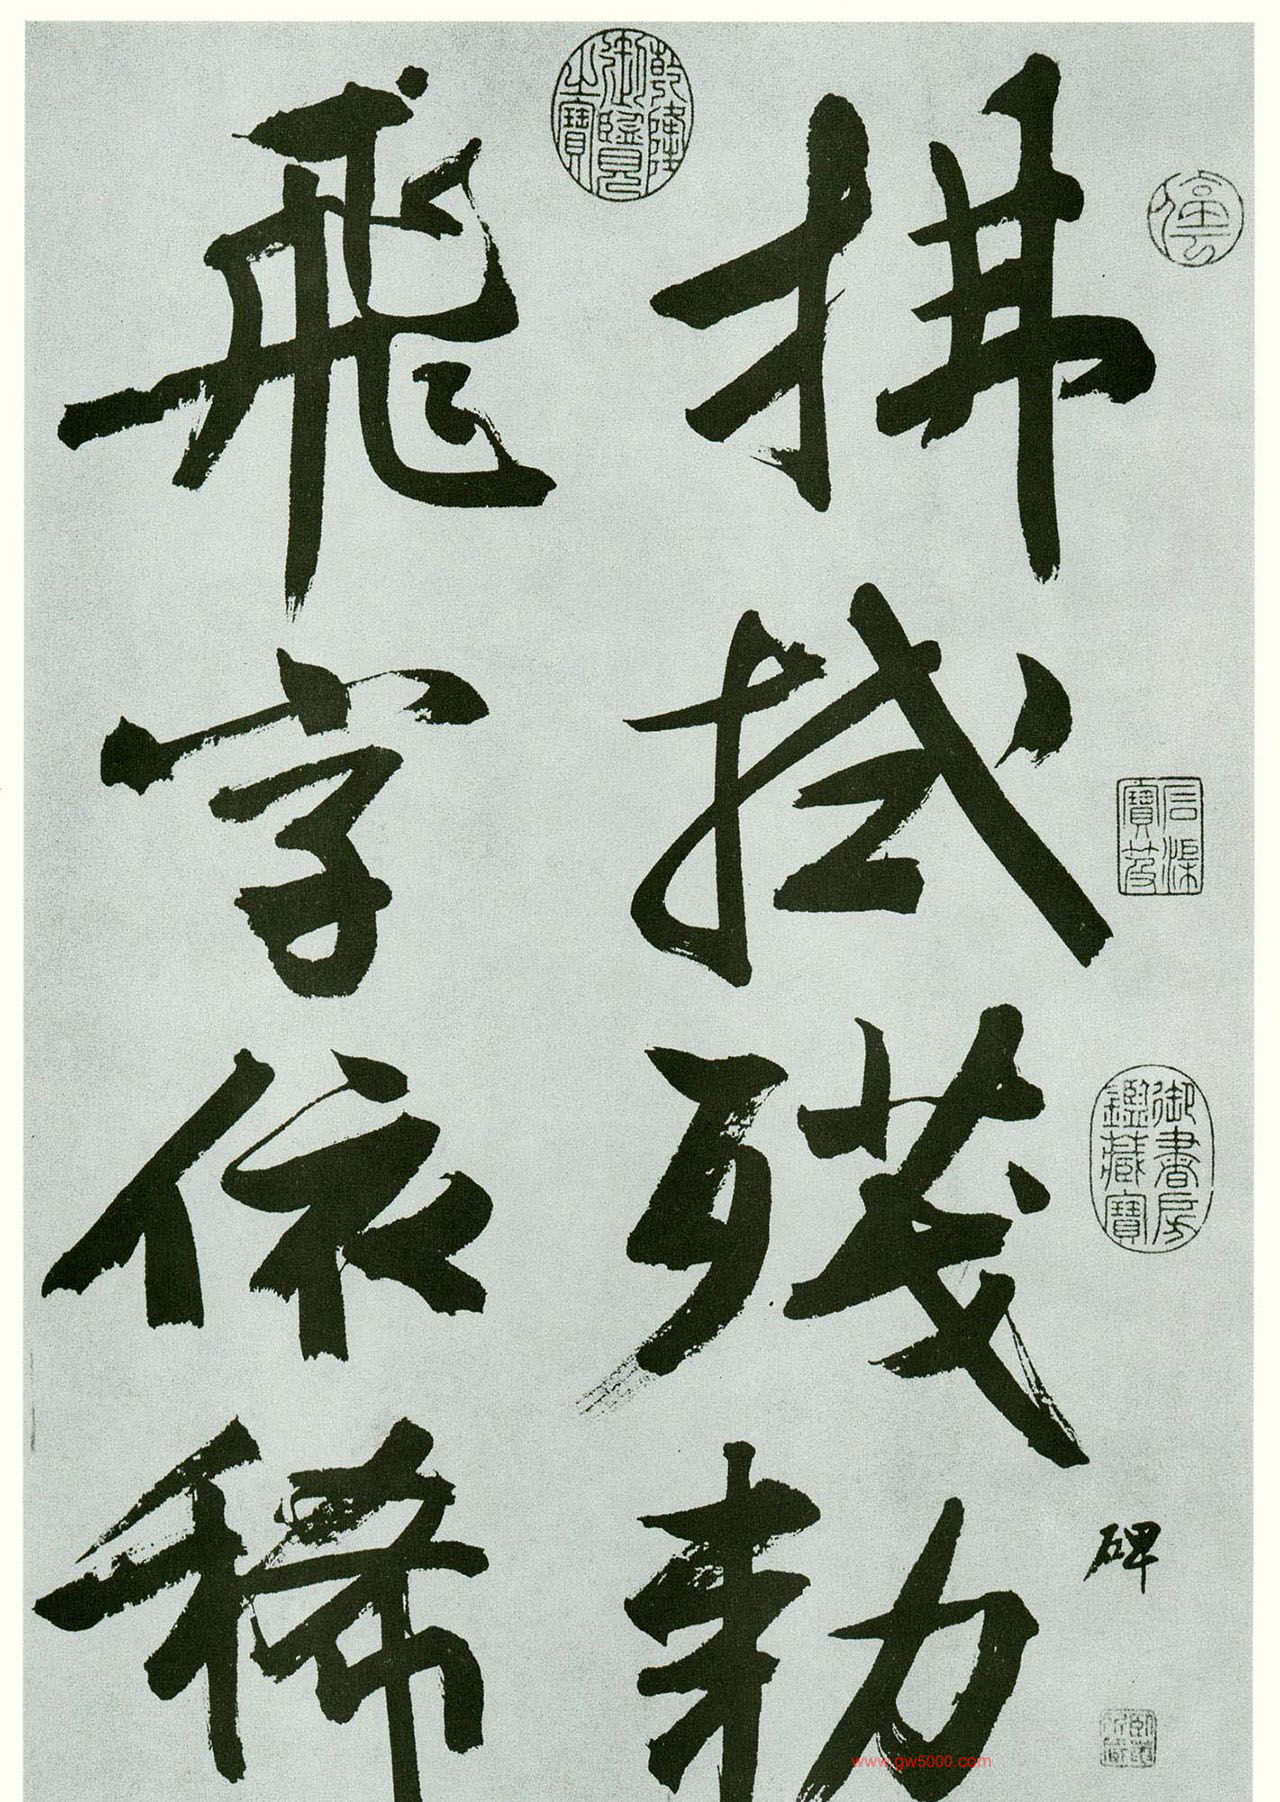 拂拭殘勅
碑
飛字依稀
乾隆御覽之寶
石渠寶笈
御書房鑑藏寶
www.gw5000.com